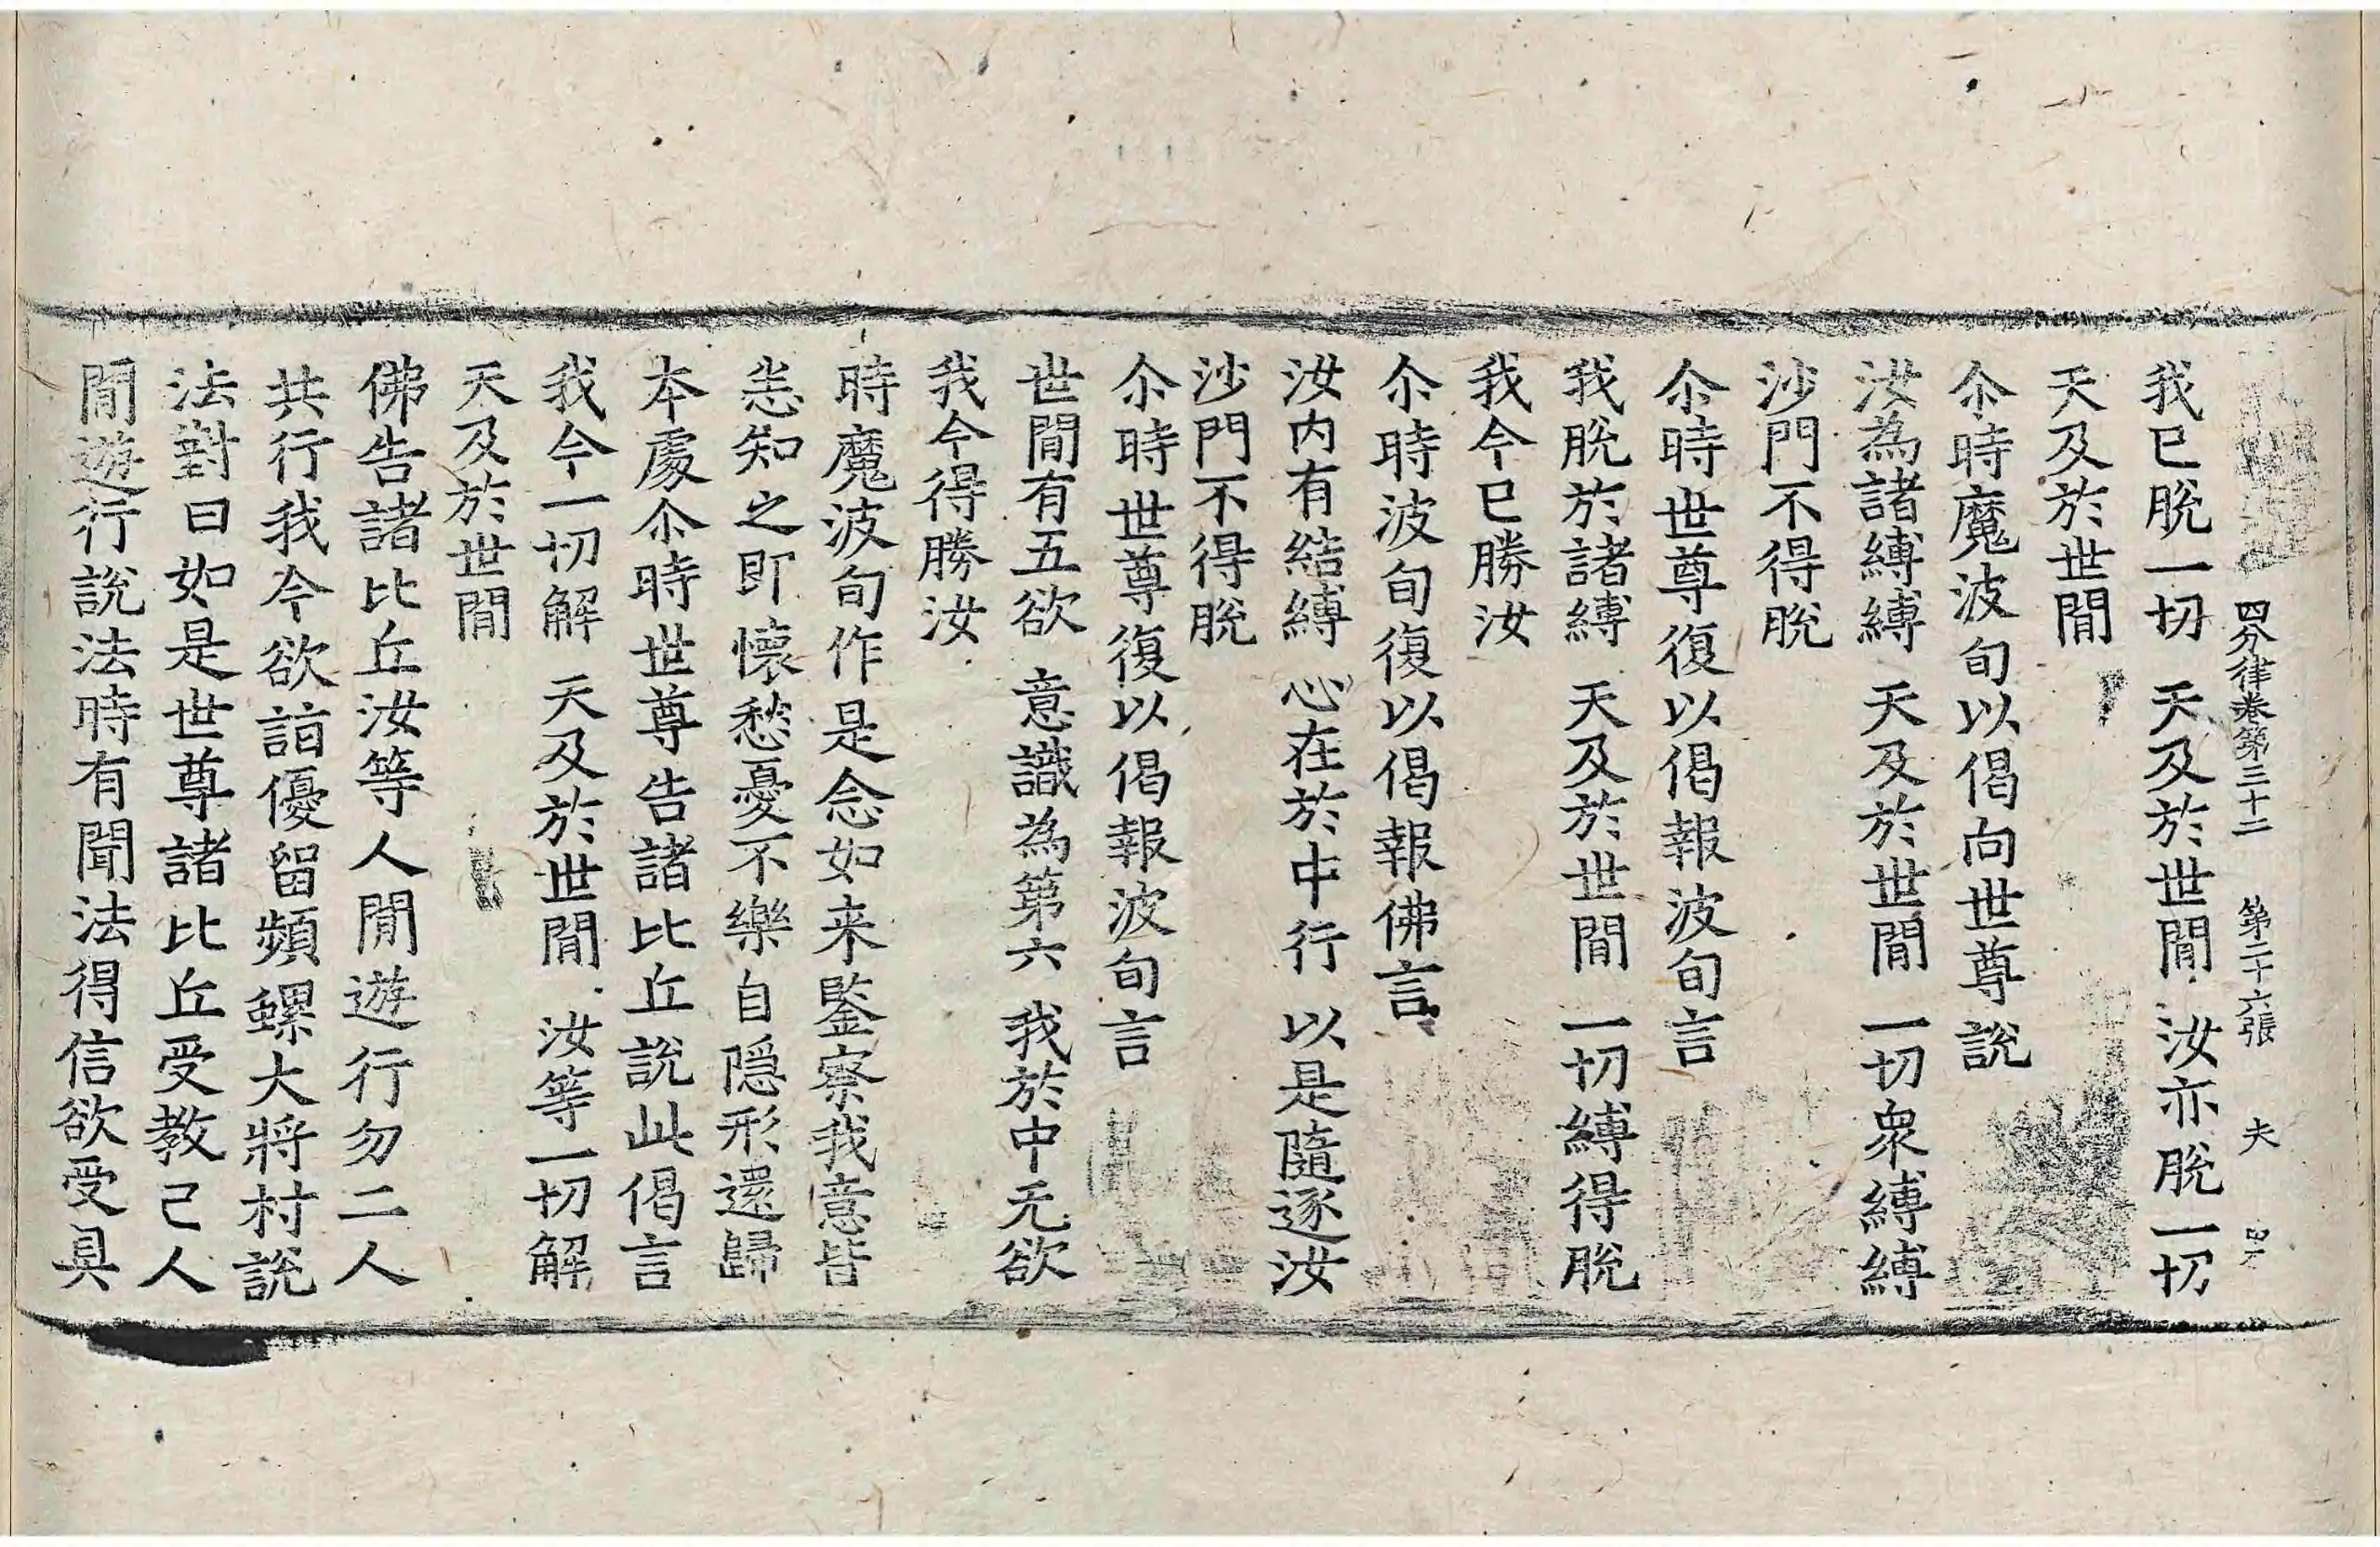 四分律卷第三十二 第二十六張 夫
我已脫一切 天及於世閒 汝亦脫一切
天及於世閒
尒時魔波旬以偈向世尊說
汝為諸縛縛 天及於世閒 一切眾縛縛
沙門不得脫
尒時世尊復以偈報波旬言
我脫於諸縛 天及於世閒 一切縛得脫
我今已勝汝
尒時波旬復以偈報佛言
汝內有結縛 心在於中行 以是隨逐汝
沙門不得脫
尒時世尊復以偈報波旬言
世閒有五欲 意識為第六 我於中无欲
我今得勝汝
時魔波旬作是念如来鑒察我意皆
悉知之即懷愁憂不樂自隱形還歸
本處尒時世尊告諸比丘說此偈言
我今一切解 天及於世閒 汝等一切解
天及於世閒
佛告諸比丘汝等人閒遊行勿二人
共行我今欲詣優留頻螺大將村說
法對曰如是世尊諸比丘受教已人
閒遊行說法時有聞法得信欲受具